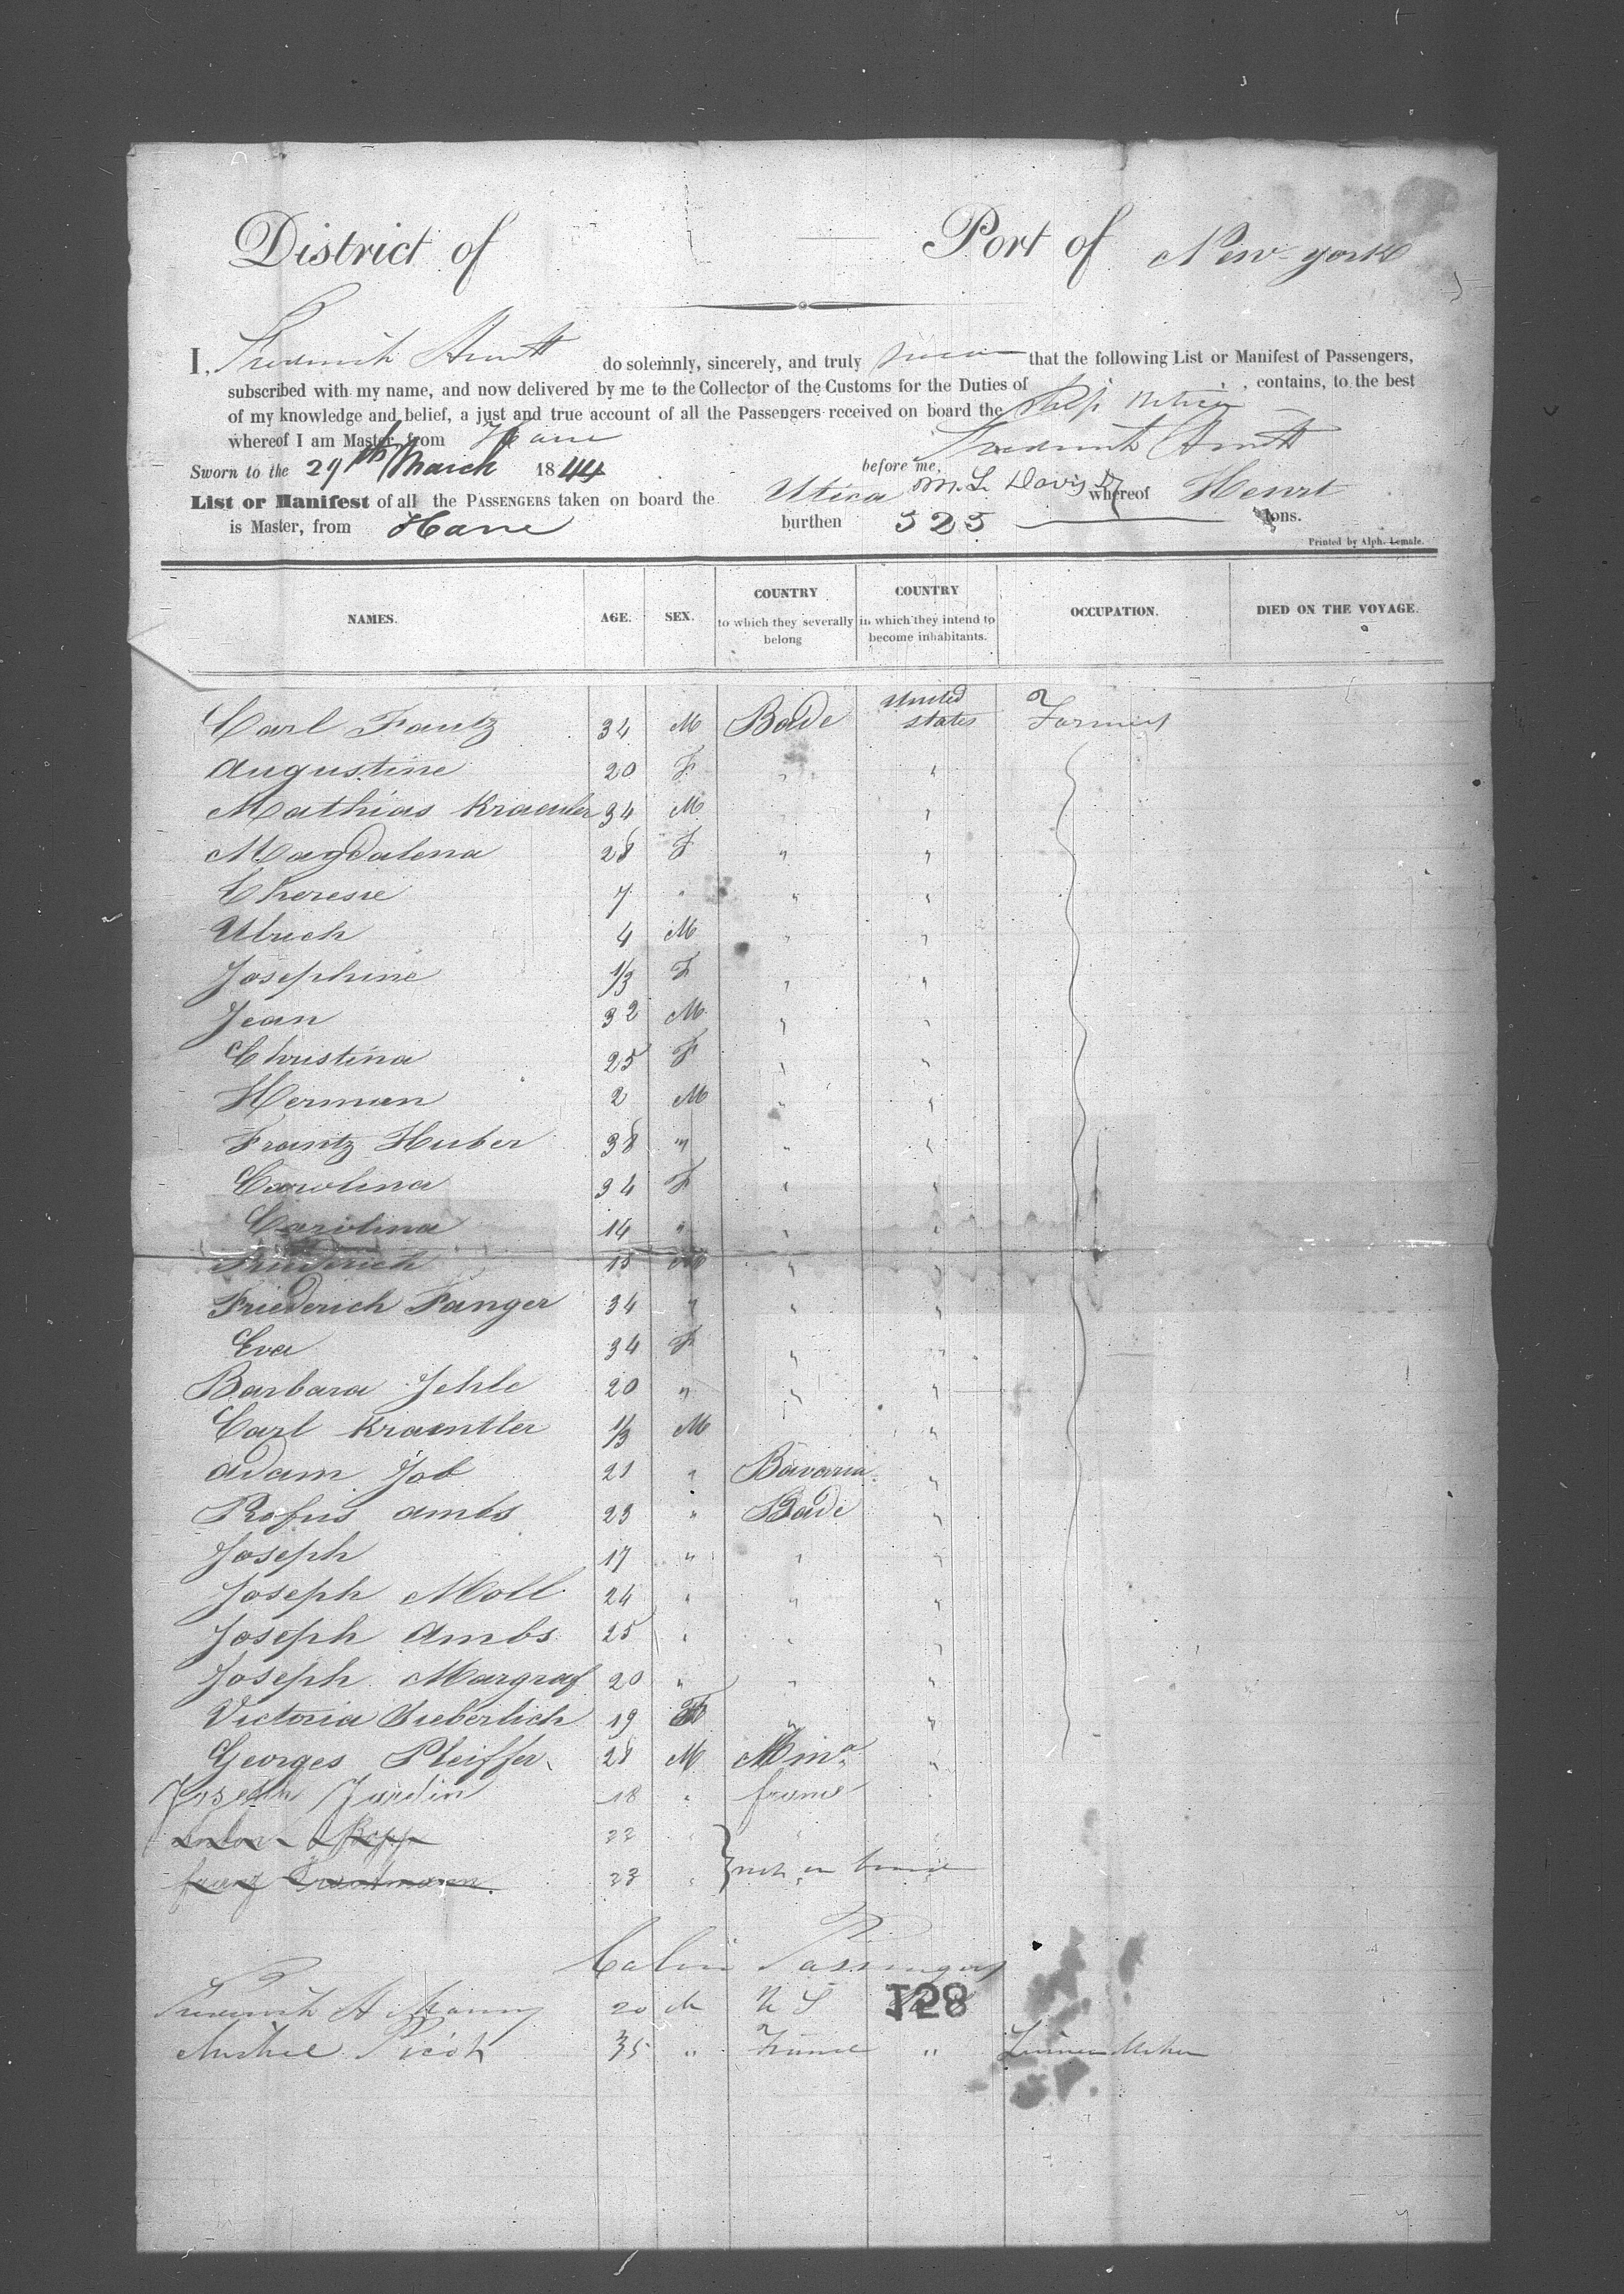 District of Port of New-york
I, Frederick Hewitt do solemnly, sincerely, and truly swear that the following List or Manifest of Passengers,
subscribed with my name, and now delivered by me to the Collector of the Customs for the Duties of , contains, to the best
of my knowledge and belief, a just and true account of all the Passengers received on board the Ship Utica
whereof I am Master, from Havre Frederick Hewitt
Sworn to the 29th March 1844 before me, M. L. Davis
List or Manifest of all the PASSENGERS taken on board the Utica whereof Hewitt
is Master, from Havre burthen 525 tons.
Printed by Alph. Lemale.
NAMES. AGE. SEX. COUNTRY to which they severally belong COUNTRY in which they intend to become inhabitants. OCCUPATION. DIED ON THE VOYAGE.
Carl Fautz 34 M Bade United states Farmers
Augustine 20 F " "
Mathias Kraentler 34 M " "
Magdalena 28 F " "
Theresie 7 " " "
Ulrich 4 M " "
Josephine 1/3 F " "
Jean 32 M " "
Christina 25 F " "
Herman 2 M " "
Frantz Huber 38 " " "
Carolina 34 F " "
Carolina 14 " " "
Friederich 15 M " "
Friederich Fanger 34 " " "
Eva 34 F " "
Barbara Jehle 20 " " "
Carl Kraentler 1/3 M "
Adam Job 21 " Bavaria "
Rofus Ambs 23 " Bade "
Joseph 17 " " "
Joseph Moll 24 " " "
Joseph Ambs 25 " " "
Joseph Margraf 20 " " "
Victoria Sieberlich 19 F " "
Georges Pfeiffer 28 M "
Joseph Jardin 18 " france "
22 " " "
franz Trautmann 23 " not on board
Cabin Passengers
Frederick A Manny 20 M U S
Michel Picot 35 " France "
128